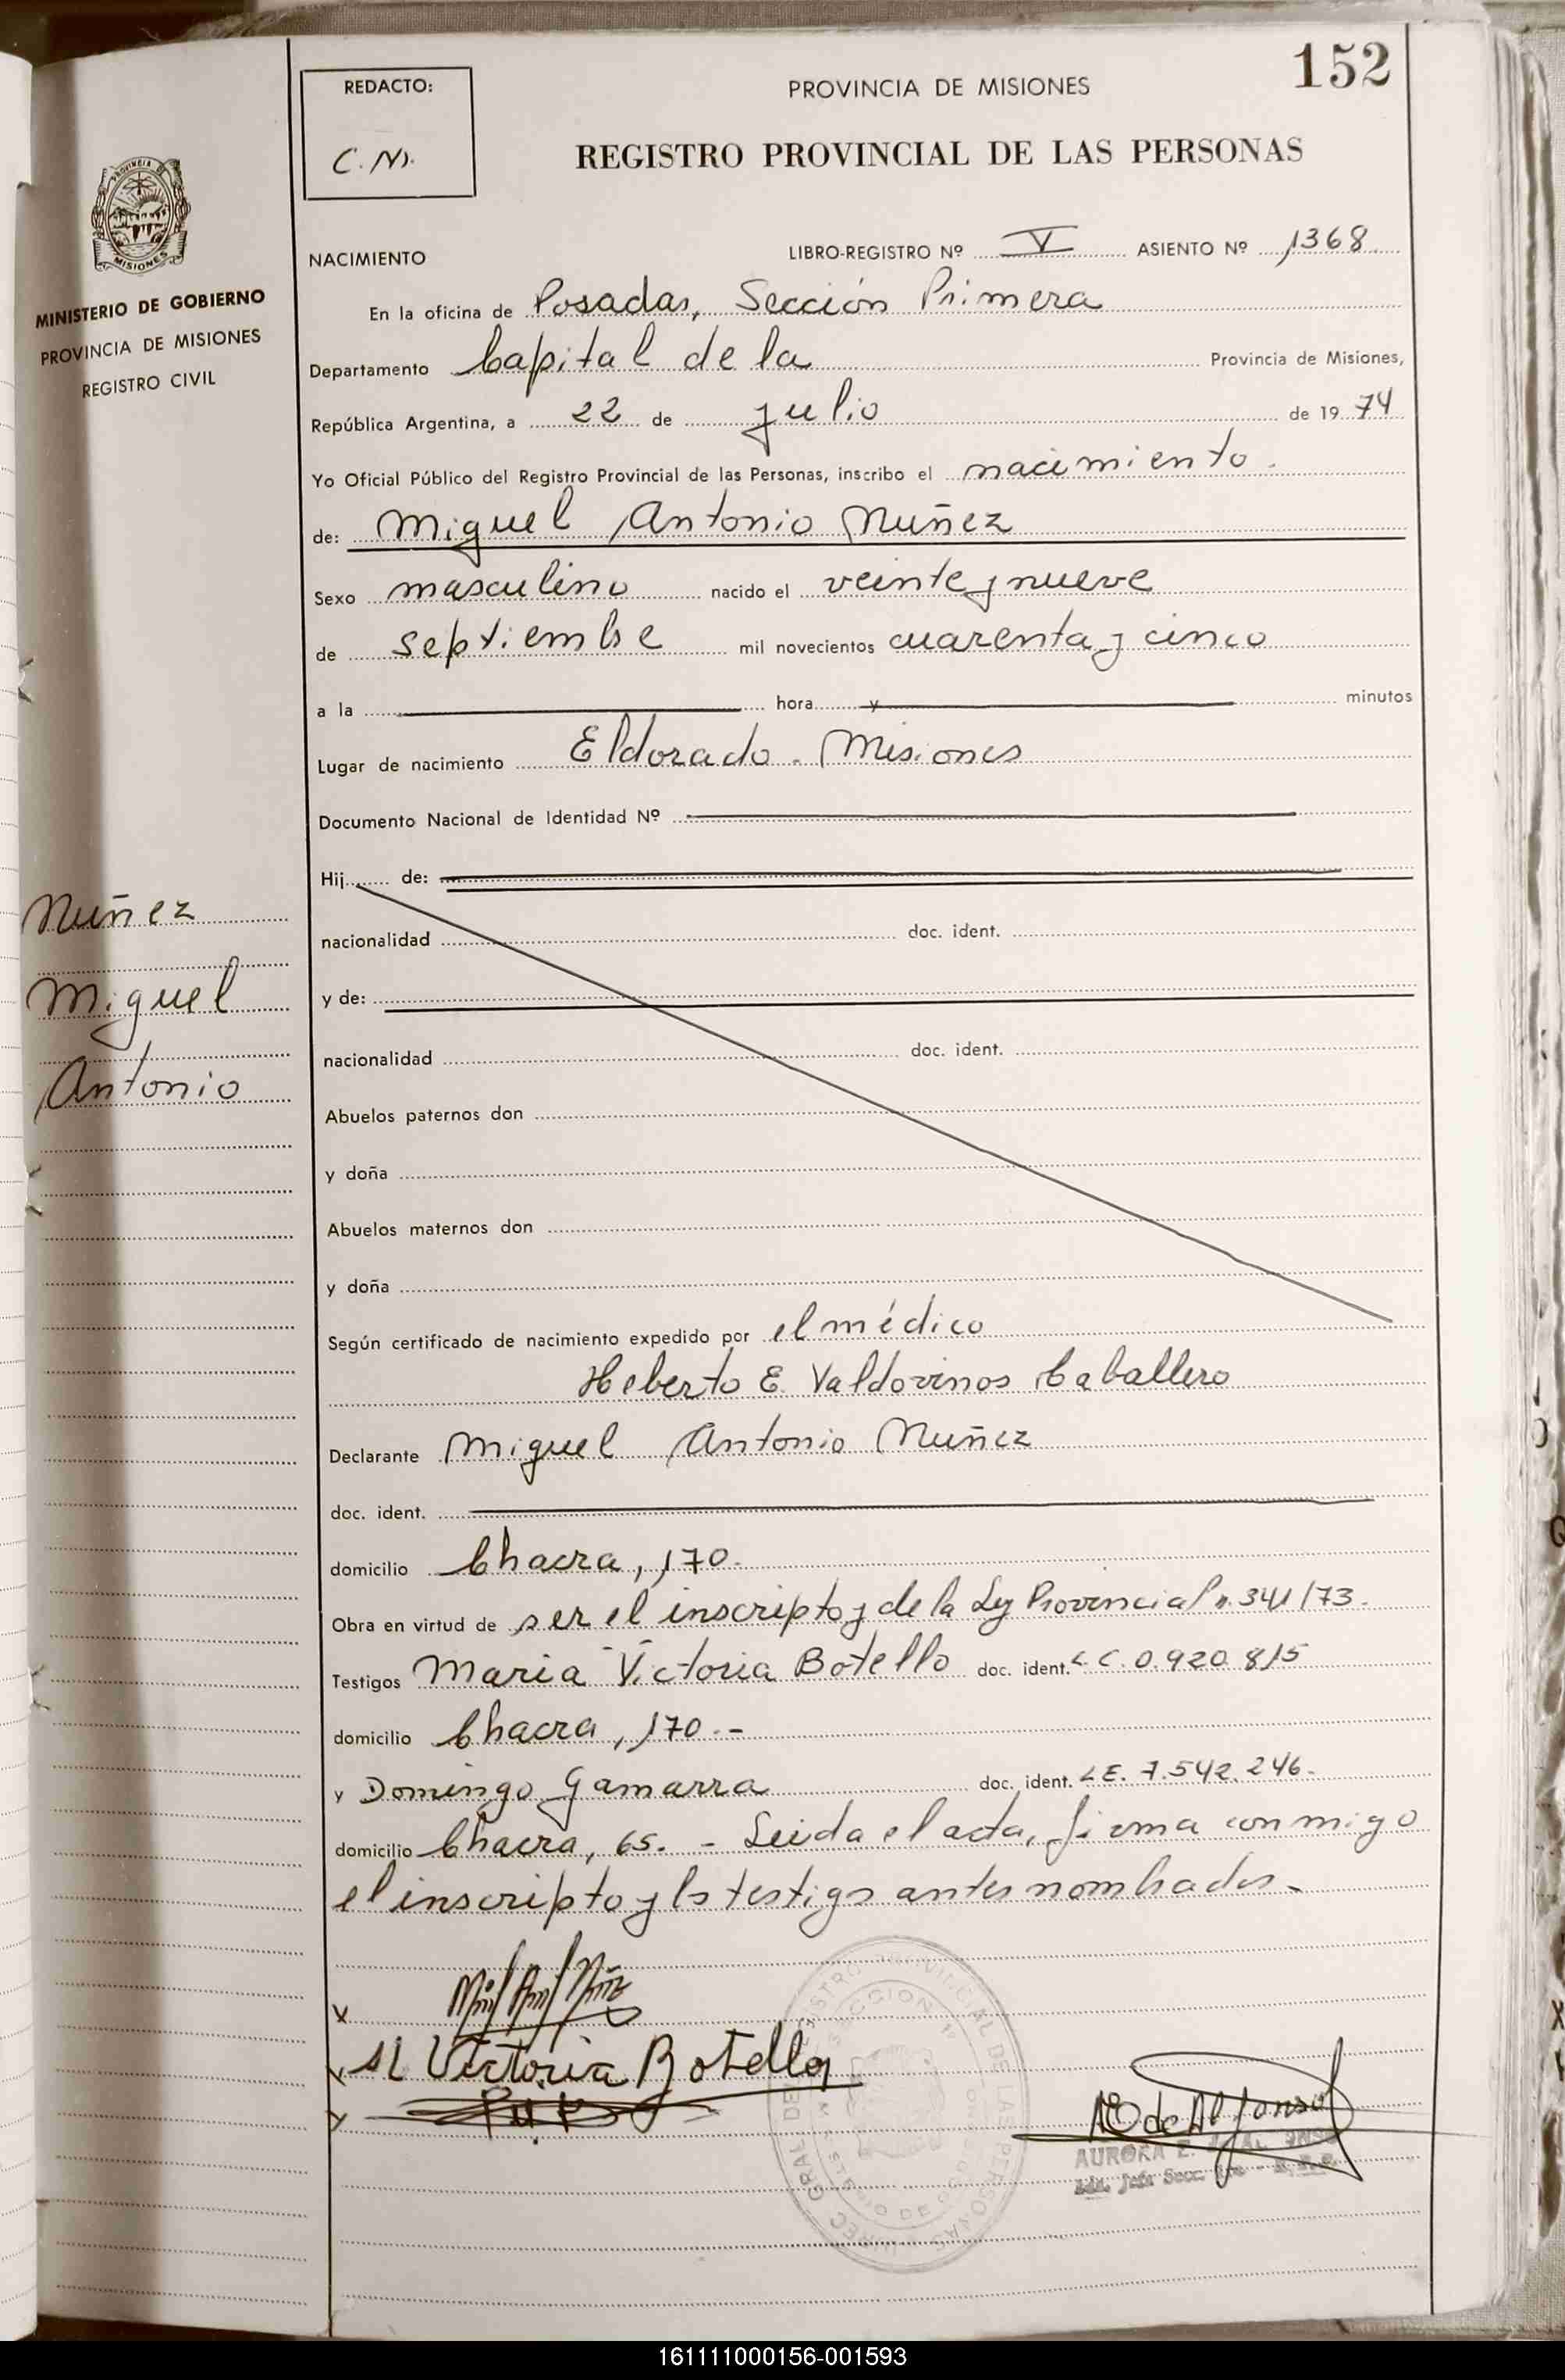 152
REDACTO:
C.N.
PROVINCIA DE MISIONES
REGISTRO PROVINCIAL DE LAS PERSONAS
PROVINCIA DE
MISIONES
MINISTERIO DE GOBIERNO
PROVINCIA DE MISIONES
REGISTRO CIVIL
NACIMIENTO LIBRO-REGISTRO Nº V ASIENTO Nº 1368
En la oficina de Posadas, Sección Primera
Departamento Capital de la Provincia de Misiones,
República Argentina, a 22 de julio de 19 74
Yo Oficial Público del Registro Provincial de las Personas, inscribo el nacimiento.
de: Miguel Antonio Nuñez
Sexo masculino nacido el veinte y nueve
de septiembre mil novecientos cuarenta y cinco
a la hora y minutos
Lugar de nacimiento Eldorado - Misiones
Documento Nacional de Identidad Nº
Hij de:
nacionalidad doc. ident.
y de:
nacionalidad doc. ident.
Abuelos paternos don
y doña
Abuelos maternos don
y doña
Nuñez
Miguel
Antonio
Según certificado de nacimiento expedido por el médico
Heberto E. Valdovinos Caballero
Declarante Miguel Antonio Nuñez
doc. ident.
domicilio Chacra, 170.
Obra en virtud de ser el inscripto y de la Ley Provincial n. 341/73.
Testigos Maria Victoria Botello doc. ident. L.C. 0.920.815
domicilio Chacra, 170.-
y Domingo Gamarra doc. ident. L.E. 7.542.246.
domicilio Chacra, 65. - Leida el acta, firma conmigo
el inscripto y ls testigs antes nombrados.
x
M Victoria Botello
A E de Alfonso
AURORA E.
161111000156-001593